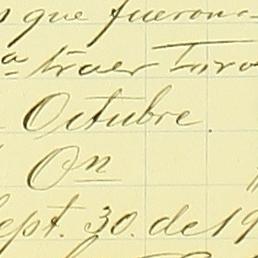 que fueron
a traer
Octubre.
On
Sept. 30. de 19